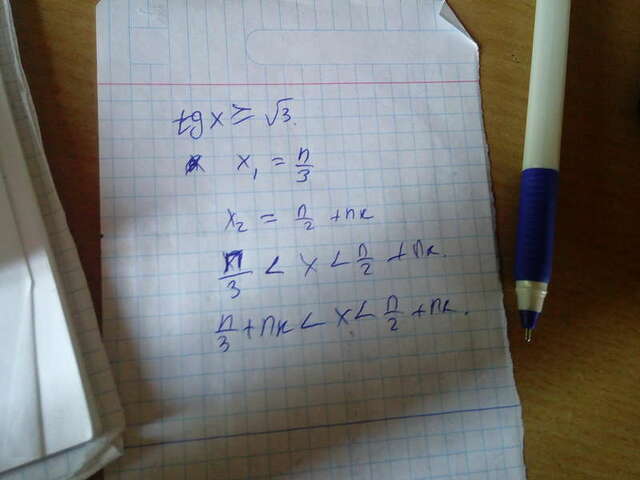 tg x ≥ √3.
x₁ = π/3
x₂ = π/2 + πk
π/3 < x < π/2 + πk.
π/3 + πk < x < π/2 + πk.